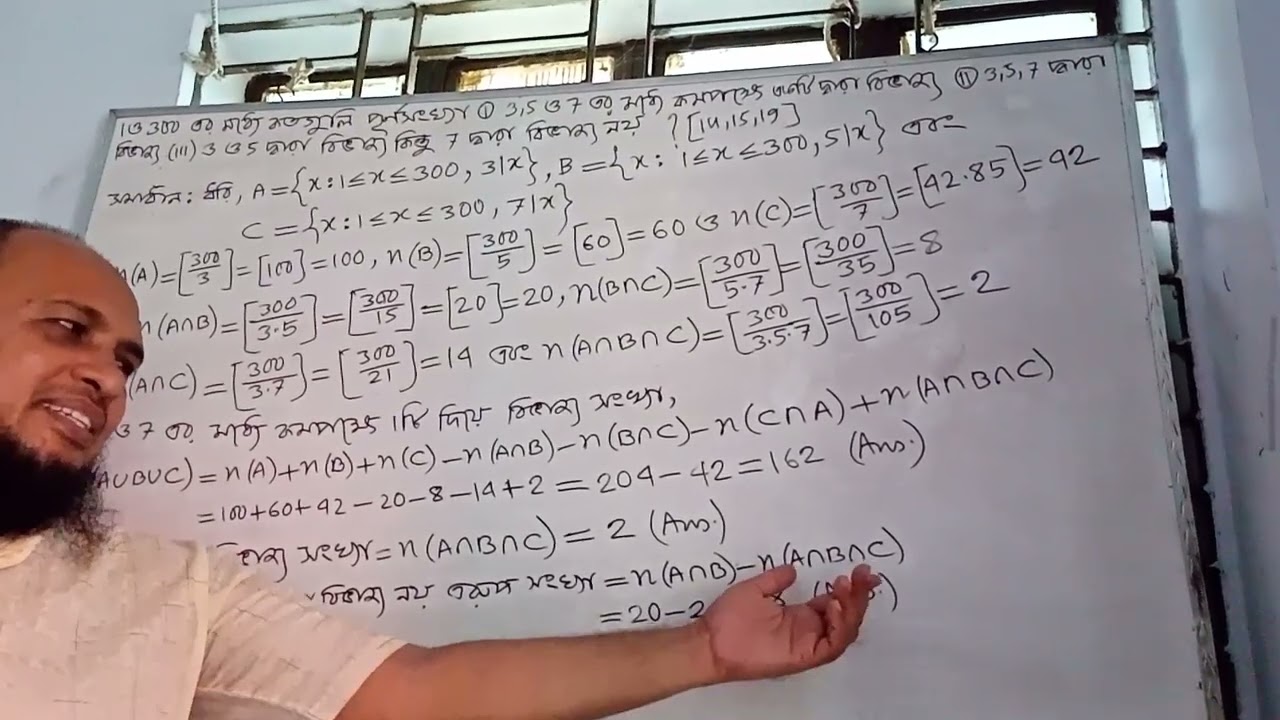 1 ও 300 এর মধ্যে কতগুলি পূর্ণসংখ্যা ① 3, 5 ও 7 এর মধ্যে কমপক্ষে একটি দ্বারা বিভাজ্য ⑪ 3, 5, 7 দ্বারা
বিভাজ্য (III) 3 ও 5 দ্বারা বিভাজ্য কিন্তু 7 দ্বারা বিভাজ্য নয় ? [14, 15, 19]
সমাধান: ধরি, A = {x : 1 ≤ x ≤ 300, 3|x}, B = {x : 1 ≤ x ≤ 300, 5|x} এবং
C = {x : 1 ≤ x ≤ 300, 7|x}
n(A) = [300/3] = [100] = 100, n(B) = [300/5] = [60] = 60 ও n(C) = [300/7] = [42.85] = 42
n(A∩B) = [300/3·5] = [300/15] = [20] = 20, n(B∩C) = [300/5·7] = [300/35] = 8
(A∩C) = [300/3·7] = [300/21] = 14 এবং n(A∩B∩C) = [300/3·5·7] = [300/105] = 2
ও 7 এর মধ্যে কমপক্ষে 1টি দিয়ে বিভাজ্য সংখ্যা,
(A∪B∪C) = n(A) + n(B) + n(C) - n(A∩B) - n(B∩C) - n(C∩A) + n(A∩B∩C)
= 100 + 60 + 42 - 20 - 8 - 14 + 2 = 204 - 42 = 162 (Ans.)
বিভাজ্য সংখ্যা = n(A∩B∩C) = 2 (Ans.)
বিভাজ্য নয় এরূপ সংখ্যা = n(A∩B) - n(A∩B∩C)
= 20 - 2 8